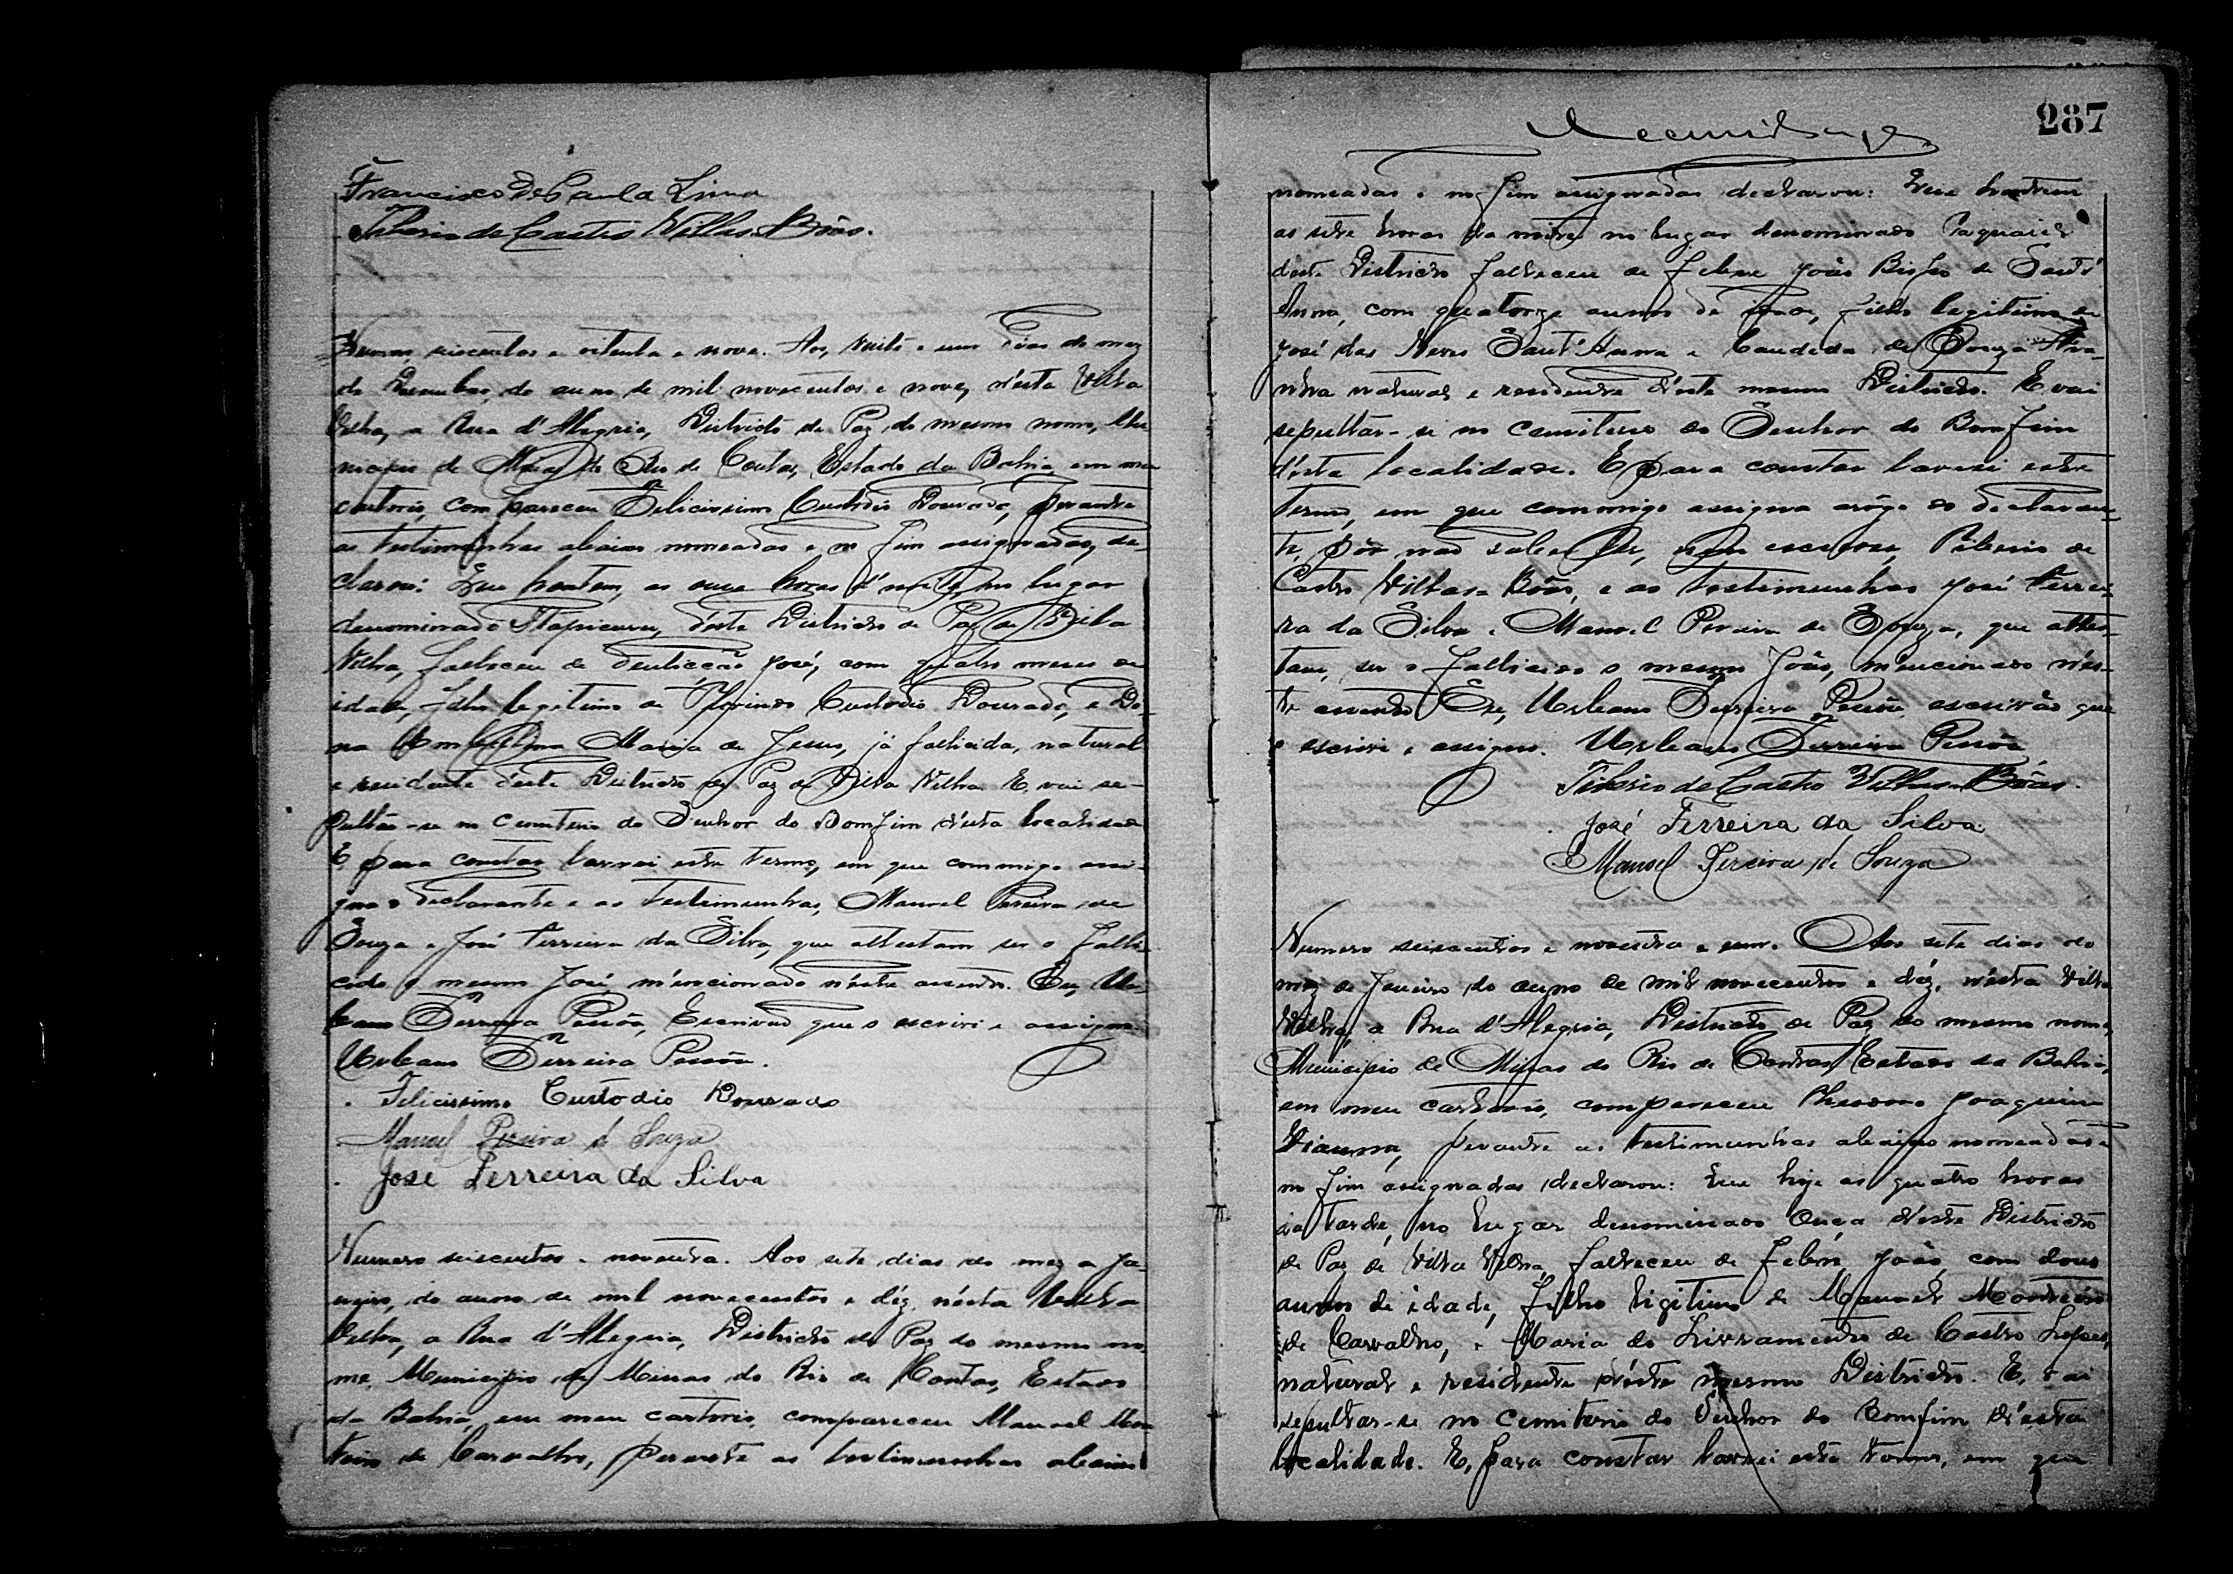 Francisco de Paula Lima
Tiberio de Castro Villas Bôas.
Numero seiscentos e oitenta e nove. Aos vinte e um dias do mez
de Dezembro do anno de mil novecentos e nove, n'esta Villa
Velha, a Rua d'Alegria, Districto de Paz do mesmo nome, Mu
nicipio de Minas do Rio de Contas, Estado da Bahia, em meu
cartorio, compareceu Felicissimo Custodio Dourado, perante
as testimunhas abaixo nomeadas e no fim assignadas, de-
clarou: Que hontem, as onze horas da noite, no lugar
denominado Itapicuru, d'este Districto de Paz de Villa
Velha, falleceu de dentição José, com quatro mezes de
idade, filho legitimo de Florindo Custodio Dourado, e Do-
na Umbelina Maria de Jesus, já fallecida, natural
e residente d'este Districto de Paz de Villa Velha. E vai se-
pultar-se no Cemiterio do Senhor do Bomfim d'esta localidade
E, para constar lavrei este termo, em que commigo assi-
gna o declarante e as testimunhas, Manoel Pereira de
Souza e José Ferreira da Silva, que attestam ser o falle-
cido o mesmo José, mencionado n'este assento. Eu, Ur-
bano Ferreira Pessôa, Escrivão que o escrivi e assigno.
Urbano Ferreira Pessôa.
Felicissimo Custodio Dourado
Manoel Pereira de Souza
José Ferreira da Silva
Numero seiscentos e noventa. Aos sete dias do mez de Ja-
neiro, do anno de mil novecentos e déz, n'esta Villa
Velha, a Rua d'Alegria, Districto de Paz do mesmo no-
me, Municipio de Minas do Rio de Contas, Estado
da Bahia, em meu cartorio, compareceu Manoel Mon
teiro de Carvalho, perante as testimunhas abaixo
287
nomeadas e no fim assignadas declarou: Que hontem
as sete horas da noite no lugar denominado
d'este Districto falleceu de febre João Bispo de Sant'
Anna, com quatorze annos de idade, filho legitimo de
José das Neves Sant'Anna e Candida de Souza
natural e residente d'este mesmo Districto. E vai
sepultar-se no Cemiterio do Senhor do Bomfim
d'esta localidade. E para constar lavrei este
termo, em que commigo assigna arôgo do declaran-
te, por não saber ler, nem escrever, Tiberio de
Castro Villas Bôas, e as testimunhas José Ferrei-
ra da Silva e Manoel Pereira de Souza, que attes-
tam, ser o fallecido o mesmo João, mencionado n'es-
te assento. Eu, Urbano Ferreira Pessôa, escrivão que
o escrivi e assigno. Urbano Ferreira Pessôa
Tiberio de Castro Villas Bôas.
José Ferreira da Silva
Manoel Pereira de Souza
Numero seiscentos e noventa e um. Aos sete dias do
mez de Janeiro do anno de mil novecentos e déz, n'esta Villa
Velha, a Rua d'Alegria, Districto de Paz do mesmo nome,
Municipio de Minas do Rio de Contas, Estado da Bahia,
em meu cartorio, compareceu Joaquim
Vianna, perante as testimunhas abaixo nomeadas e
no fim assignadas declarou: Que hoje as quatro horas
da tarde, no lugar denominado Onça d'este Districto
de Paz de Villa Velha, falleceu de febre, João, com dous
annos de idade, filho ligitimo de Manoel Monteiro
de Carvalho, e Maria do Livramento de Castro Lopes,
natural e residente d'este mesmo Districto. E, vai
sepultar-se no Cemiterio do Senhor do Bomfim d'esta
localidade. E, para constar lavrei este termo, em que